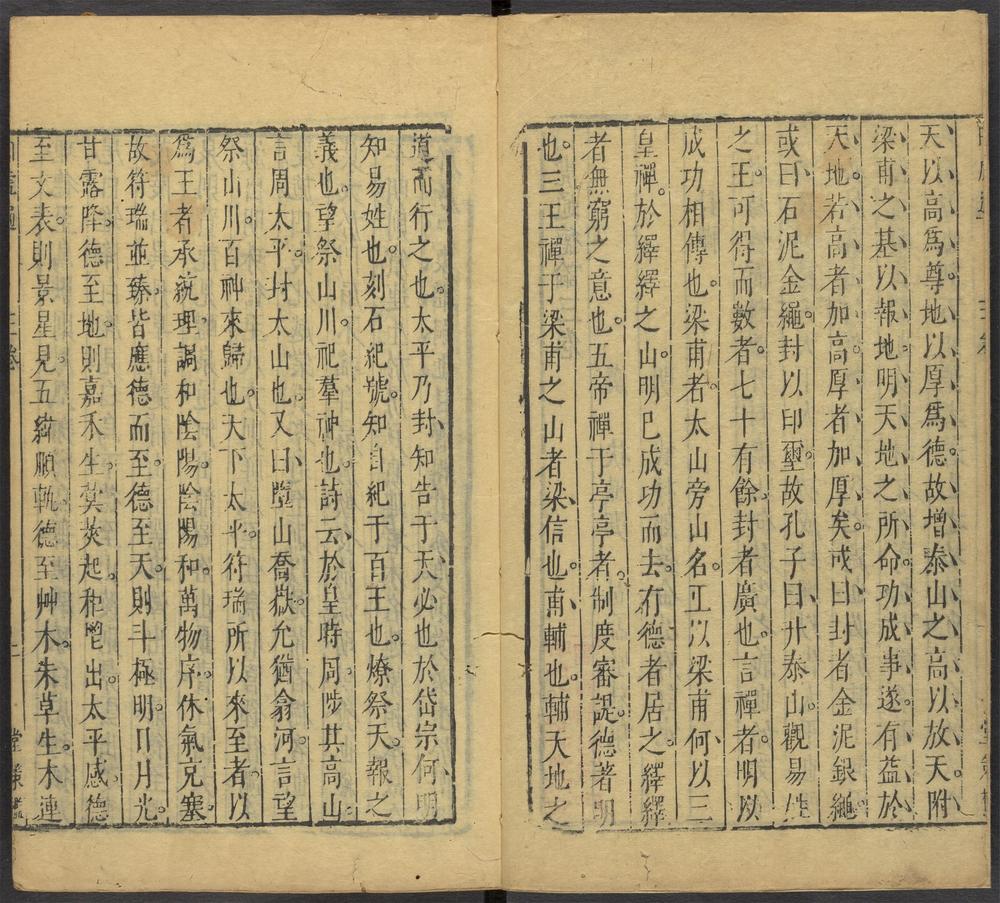 天以高爲尊。地以厚爲德。故增泰山之高以放天。附
梁甫之基以報地。明天地之所命。功成事遂。有益於
天地。若高者加高。厚者加厚矣。或曰。封者金泥銀繩。
或曰。石泥金繩。封以印璽。故孔子曰。升泰山。觀易姓
之王。可得而數者。七十有餘。封者廣也。言禪者。明以
成功相傳也。梁甫者。太山旁山名。正以梁甫何。以三
皇禪。於繹繹之山。明已成功而去。有德者居之。繹繹
者無窮之意也。五帝禪于亭亭者。制度審諟。德著明
也。三王禪于梁甫之山者。梁信也。甫輔也。輔天地之
道而行之也。太平乃封。知告于天。必也於岱宗何。明
知易姓也。刻石紀號。知自紀于百王也。燎祭天。報之
義也。望祭山川。祀羣神也。詩云。於皇時周。陟其高山
言周太平。封太山也。又曰。墮山喬嶽。允猶翕河。言望
祭山川。百神來歸也。天下太平。符瑞所以來至者。以
爲王者承統理。調和陰陽。陰陽和。萬物序。休氣充塞。
故符瑞並臻。皆應德而至。德至天。則斗極明。日月光。
甘露降。德至地。則嘉禾生。蓂莢起。秬鬯出。太平感。德
至文表。則景星見。五緯順軌。德至艸木。朱草生。木連